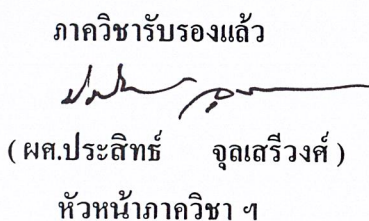 ภาควิชารับรองแล้ว
( ผศ.ประสิทธ์ จุลเสรีวงศ์ )
หัวหน้าภาควิชา ฯ